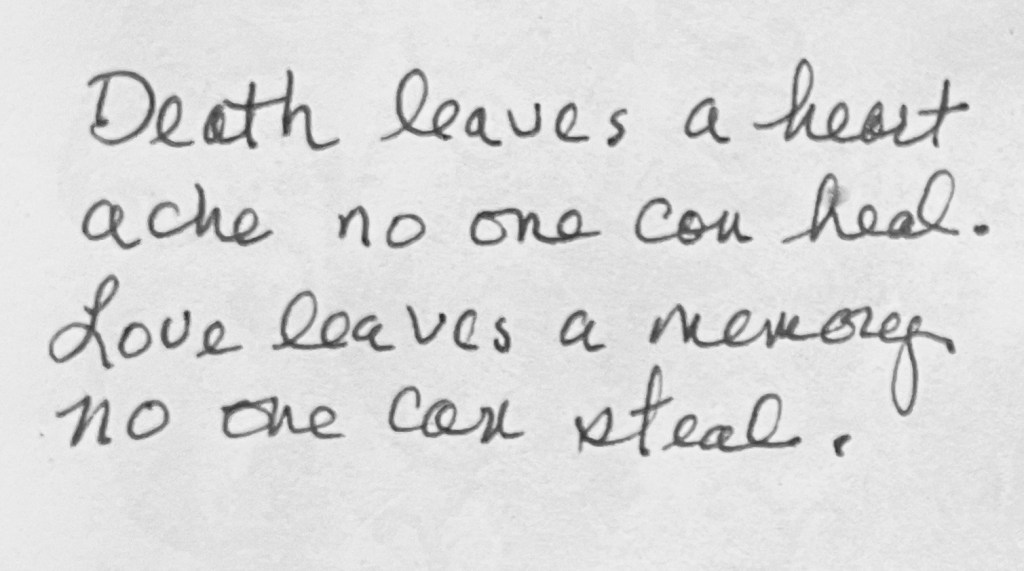 Death leaves a heart
ache no one can heal.
Love leaves a memory
no one can steal.